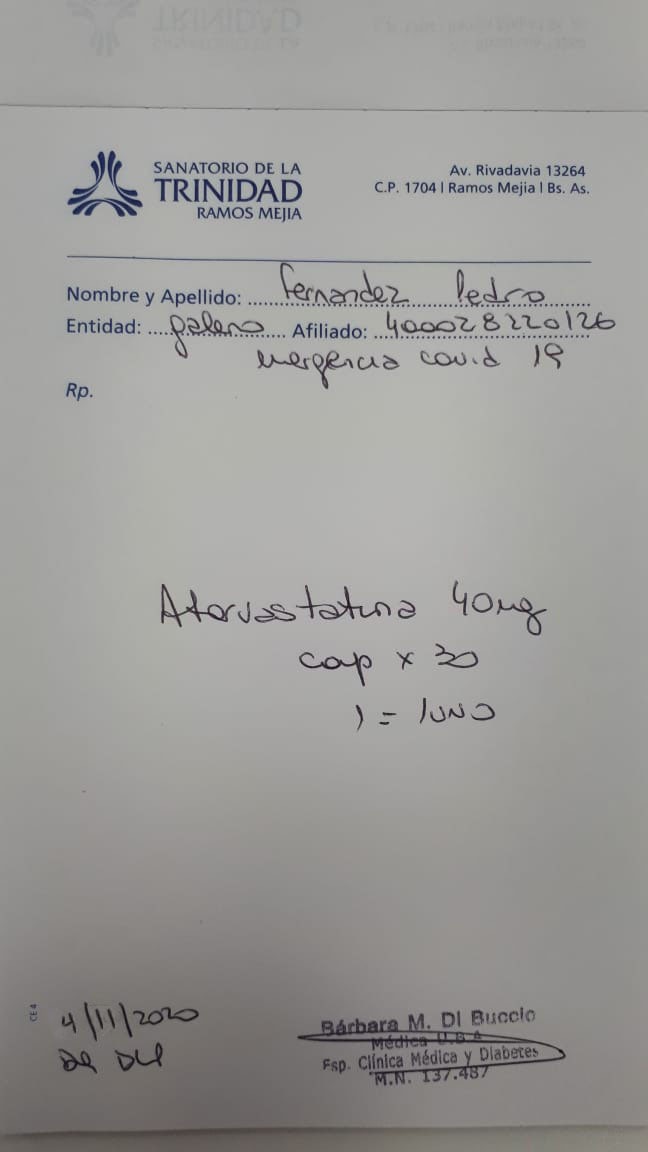 SANATORIO DE LA
TRINIDAD
RAMOS MEJIA
Av. Rivadavia 13264
C.P. 1704 | Ramos Mejia | Bs. As.
Nombre y Apellido: Fernandez Pedro
Entidad: galeno Afiliado: 400028220126
emergencia covid 19
Rp.
Atorvastatina 40mg
cap x 30
1 = 1uno
CE4
4/11/2020
Bárbara M. DI Buccio
Médica U.B.A
Esp. Clínica Médica y Diabetes
M.N. 137.487